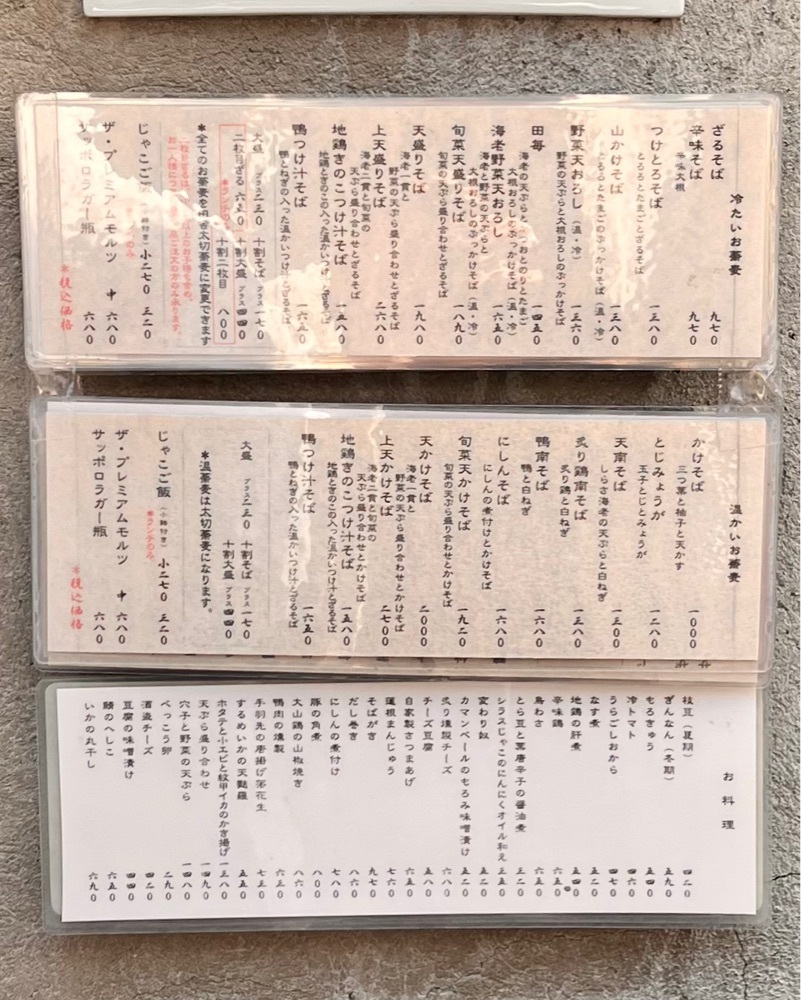 冷たいお蕎麦
ざるそば 九七〇
辛味そば 九七〇
辛味大根
つけとろそば 一二八〇
とろろとたまごとざるそば
山かけそば 一三八〇
とろろとたまごのぶっかけそば(温・冷)
野菜天おろし(温・冷) 一三六〇
野菜の天ぷらと大根おろしのぶっかけそば
田毎 一四五〇
海老の天ぷらと
大根おろしのぶっかけそば(温・冷)
海老野菜天おろし 一六五〇
海老と野菜の天ぷらと
大根おろしのぶっかけそば(温・冷)
旬菜天盛りそば 一八九〇
旬菜の天ぷら盛り合わせとざるそば
天盛りそば 一九八〇
海老一貫と
野菜の天ぷら盛り合わせとざるそば
上天盛りそば 二六八〇
海老二貫と旬菜の
天ぷら盛り合わせとざるそば
地鶏きのこつけ汁そば 一五八〇
地鶏ときのこの入った温かいつけ汁とざるそば
鴨つけ汁そば 一六五〇
鴨とねぎの入った温かいつけ汁とざるそば
大盛 プラス二三〇 十割そば プラス一七〇
二枚目ざる 六五〇 十割大盛 プラス四四〇
十割二枚目 八〇〇
*全てのお蕎麦を太切蕎麦に変更できます
じゃこご 小二七〇 三二〇
ザ・プレミアムモルツ 中 六八〇
サッポロラガー瓶 六八〇
*税込価格
温かいお蕎麦
かけそば 一〇〇〇
三つ葉と柚子と天かす
とじみょうが 一二八〇
玉子とじとみょうが
天南そば 一三五〇
しらさ海老の天ぷらと白ねぎ
炙り鶏南そば 一三八〇
炙り鶏と白ねぎ
鴨南そば 一六八〇
鴨と白ねぎ
にしんそば 一六八〇
にしんの煮付けとかけそば
旬菜天かけそば 一九二〇
旬菜の天ぷら盛り合わせとかけそば
天かけそば 二〇〇〇
海老一貫と
野菜の天ぷら盛り合わせとかけそば
上天かけそば 二七〇〇
海老二貫と旬菜の
天ぷら盛り合わせとかけそば
地鶏きのこつけ汁そば 一五八〇
地鶏ときのこの入った温かいつけ汁とざるそば
鴨つけ汁そば 一六五〇
鴨とねぎの入った温かいつけ汁とざるそば
大盛 プラス二三〇 十割そば プラス一七〇
十割大盛 プラス四四〇
*温蕎麦は太切蕎麦になります。
じゃこご飯(小鉢付き) 小二七〇 三二〇
*ランチのみ
ザ・プレミアムモルツ 中 六八〇
サッポロラガー瓶 六八〇
*税込価格
お料理
枝豆(夏期) 四二〇
ぎんなん(冬期) 五九〇
もろきゅう 五四〇
冷トマト 四六〇
うらごしおから 四七〇
なす煮 五二〇
地鶏の肝煮 五四〇
辛味鶏 六五〇
鳥わさ 六五〇
とら豆と葉唐辛子の醤油煮 三二〇
シラスじゃこのにんにくオイル和え 五五〇
変わり奴 五二〇
カマンベールのもろみ味噌漬け 五二〇
炙り燻製チーズ 六八〇
チーズ豆腐 五八〇
自家製さつまあげ 六五〇
蓮根まんじゅう 七六〇
そばがき 九七〇
だし巻き 八六〇
にしんの煮付け 七八〇
豚の角煮 八〇〇
大山鶏の山椒焼き 八六〇
鴨肉の燻製 六三〇
手羽先の唐揚げ落花生 七三〇
するめいかの天麩羅 五五〇
ホタテと小エビと紋甲イカのかき揚げ 一三八〇
天ぷら盛り合わせ 一四九〇
穴子と野菜の天ぷら 一四八〇
べっこう卵 二九〇
酒盗チーズ 四二〇
豆腐の味噌漬け 四四〇
鯖のへしこ 六五〇
いかの丸干し 六九〇